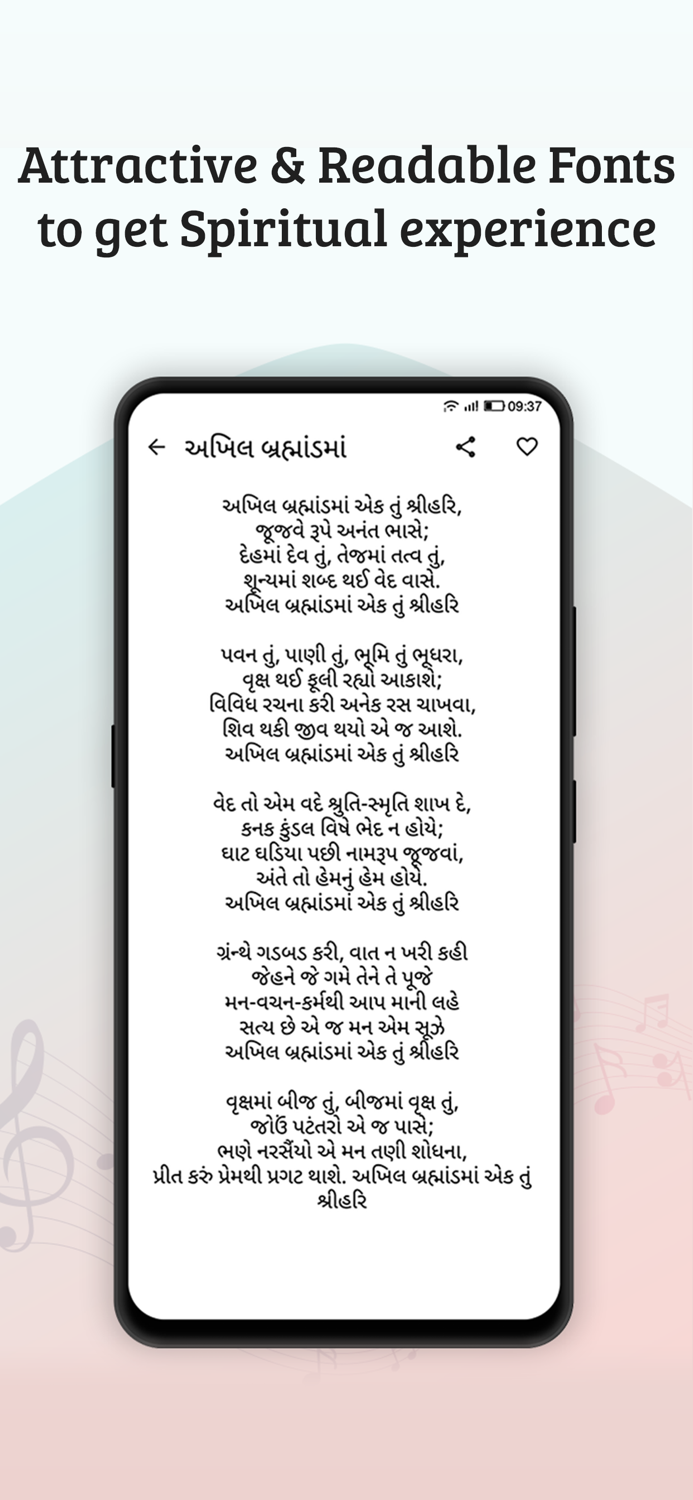 Attractive & Readable Fonts
to get Spiritual experience
09:37
અખિલ બ્રહ્માંડમાં
અખિલ બ્રહ્માંડમાં એક તું શ્રીહરિ,
જૂજવે રૂપે અનંત ભાસે;
દેહમાં દેવ તું, તેજમાં તત્વ તું,
શૂન્યમાં શબ્દ થઈ વેદ વાસે.
અખિલ બ્રહ્માંડમાં એક તું શ્રીહરિ
પવન તું, પાણી તું, ભૂમિ તું ભૂધરા,
વૃક્ષ થઈ ફૂલી રહ્યો આકાશે;
વિવિધ રચના કરી અનેક રસ ચાખવા,
શિવ થકી જીવ થયો એ જ આશે.
અખિલ બ્રહ્માંડમાં એક તું શ્રીહરિ
વેદ તો એમ વદે શ્રુતિ-સ્મૃતિ શાખ દે,
કનક કુંડલ વિષે ભેદ ન હોયે;
ઘાટ ઘડિયા પછી નામરૂપ જૂજવાં,
અંતે તો હેમનું હેમ હોયે.
અખિલ બ્રહ્માંડમાં એક તું શ્રીહરિ
ગ્રંન્થે ગડબડ કરી, વાત ન ખરી કહી
જેહને જે ગમે તેને તે પૂજે
મન-વચન-કર્મથી આપ માની લહે
સત્ય છે એ જ મન એમ સૂઝે
અખિલ બ્રહ્માંડમાં એક તું શ્રીહરિ
વૃક્ષમાં બીજ તું, બીજમાં વૃક્ષ તું,
જોઉં પટંતરો એ જ પાસે;
ભણે નરસૈંયો એ મન તણી શોધના,
પ્રીત કરું પ્રેમથી પ્રગટ થાશે. અખિલ બ્રહ્માંડમાં એક તું
શ્રીહરિ